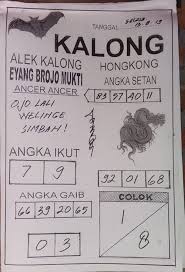 TANGGAL SELASA
KALONG
ALEK KALONG
HONGKONG
EYANG BROJO MUKTI
ANGKA SETAN
ANCER ANCER
83 57 40 11
OJO LALI
WELINGE
SIMBAH!
ANGKA IKUT
7 9
92 01 68
ANGKA GAIB
COLOK
66 39 20 65
1
8
0 3